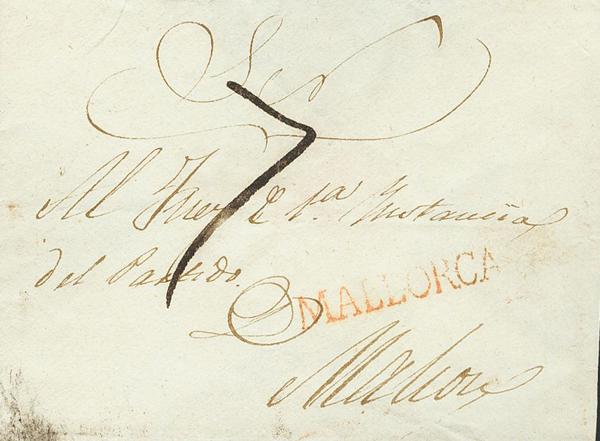 7
Al Juez de 1.ª Instancia
del Partido.
D
MALLORCA
Mahon